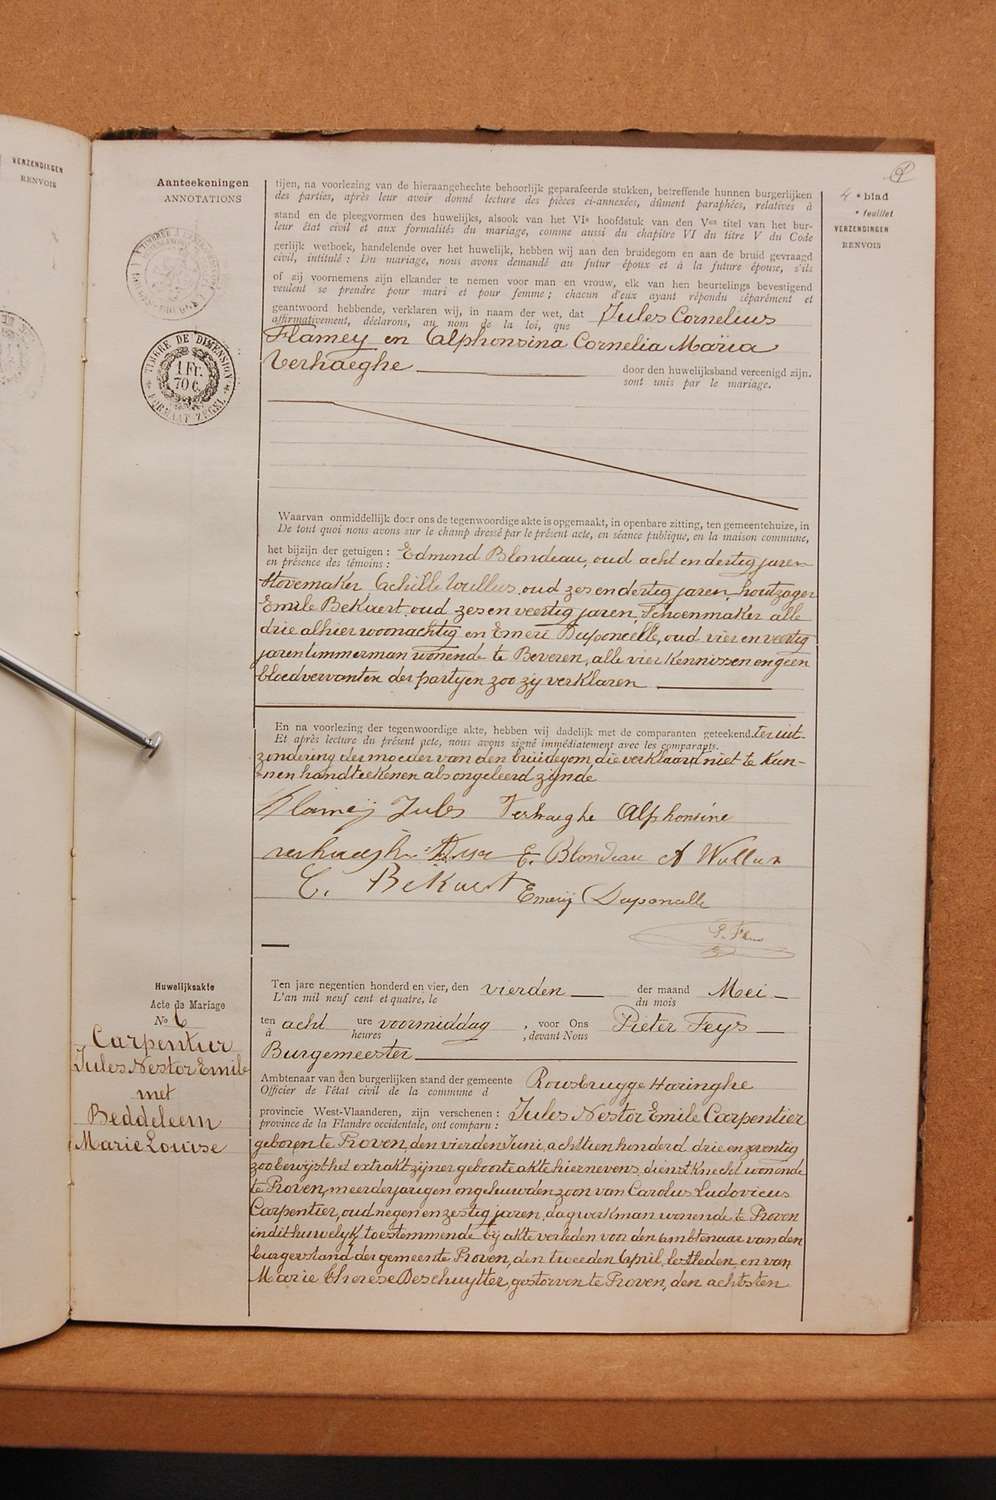 VERZENDINGEN
RENVOIS
Aanteekeningen
ANNOTATIONS
TIMBRE DE DIMENSION
1 FR.
70 C.
FORMAAT ZEGEL
4 e blad
e feuillet
VERZENDINGEN
RENVOIS
tijen, na voorlezing van de hieraangehechte behoorlijk geparafeerde stukken, betreffende hunnen burgerlijken
des parties, après leur avoir donné lecture des pièces ci-annexées, dûment paraphées, relatives à
stand en de pleegvormen des huwelijks, alsook van het VIe hoofdstuk van den Ven titel van het bur-
leur état civil et aux formalités du mariage, comme aussi du chapitre VI du titre V du Code
gerlijk wetboek, handelende over het huwelijk, hebben wij aan den bruidegom en aan de bruid gevraagd
civil, intitulé : Du mariage, nous avons demandé au futur époux et à la future épouse, s'ils
of zij voornemens zijn elkander te nemen voor man en vrouw, elk van hen beurtelings bevestigend
veulent se prendre pour mari et pour femme ; chacun d'eux ayant répondu séparément et
geantwoord hebbende, verklaren wij, in naam der wet, dat Jules Cornelius
affirmativement, déclarons, au nom de la loi, que
Flamey en Alphonsina Cornelia Maria
Verhaeghe door den huwelijksband vereenigd zijn.
sont unis par le mariage.
Waarvan onmiddelijk door ons de tegenwoordige akte is opgemaakt, in openbare zitting, ten gemeentehuize, in
De tout quoi nous avons sur le champ dressé par le présent acte, en séance publique, en la maison commune,
het bijzijn der getuigen : Edmond Blondeau, oud acht en dertig jaren
en présence des témoins :
Stovemaker Achille Wullus, oud zes en dertig jaren, houtzager
Emile Bekaert, oud zes en veertig jaren, Schoenmaker alle
drie alhier woonachtig en Emeri Duponcelle, oud vier en veertig
jaren timmerman wonende te Beveren, alle vier Kennissen en geen
bloedverwanten der partyen zoo zy verklaren
En na voorlezing der tegenwoordige akte, hebben wij dadelijk met de comparanten geteekend. ter uit-
Et après lecture du présent acte, nous avons signé immédiatement avec les comparants.
zondering der moeder van den bruidegom, die verklaard niet te Kun-
nen handteekenen als ongeleerd zijnde
Flameij Jules Verhaeghe Alphonsine
E. Blondeau A Wullus
C. Bekaert Emerij Duponcelle
P. Feys
Huwelijksakte
Acte de Mariage
No 6
Carpentier
Jules Nestor Emile
met
Beddeleem
Marie Louise
Ten jare negentien honderd en vier, den vierden der maand Mei
L'an mil neuf cent et quatre, le du mois
ten acht ure voormiddag, voor Ons Pieter Feys
à heures , devant Nous
Burgemeester
Ambtenaar van den burgerlijken stand der gemeente Rousbrugge Haringhe
Officier de l'état civil de la commune d
provincie West-Vlaanderen, zijn verschenen : Jules Nestor Emile Carpentier
province de la Flandre occidentale, ont comparu :
geboren te Proven, den vierden Juni, achttien honderd drie en zeventig
zoo bewijst het extrakt zijner geboorteakte hiernevens, dienstknecht wonende
te Proven, meerderjarigen ongehuwden zoon van Carolus Ludovicus
Carpentier, oud negen en zestig jaren, dagwerkman wonende te Proven
in dit huwelyk toestemmende bij akte verleden voor den Ambtenaar van den
burgerstand der gemeente Proven, den tweeden April, lestleden, en van
Marie Therese Deschuytter, gestorven te Proven, den achtsten